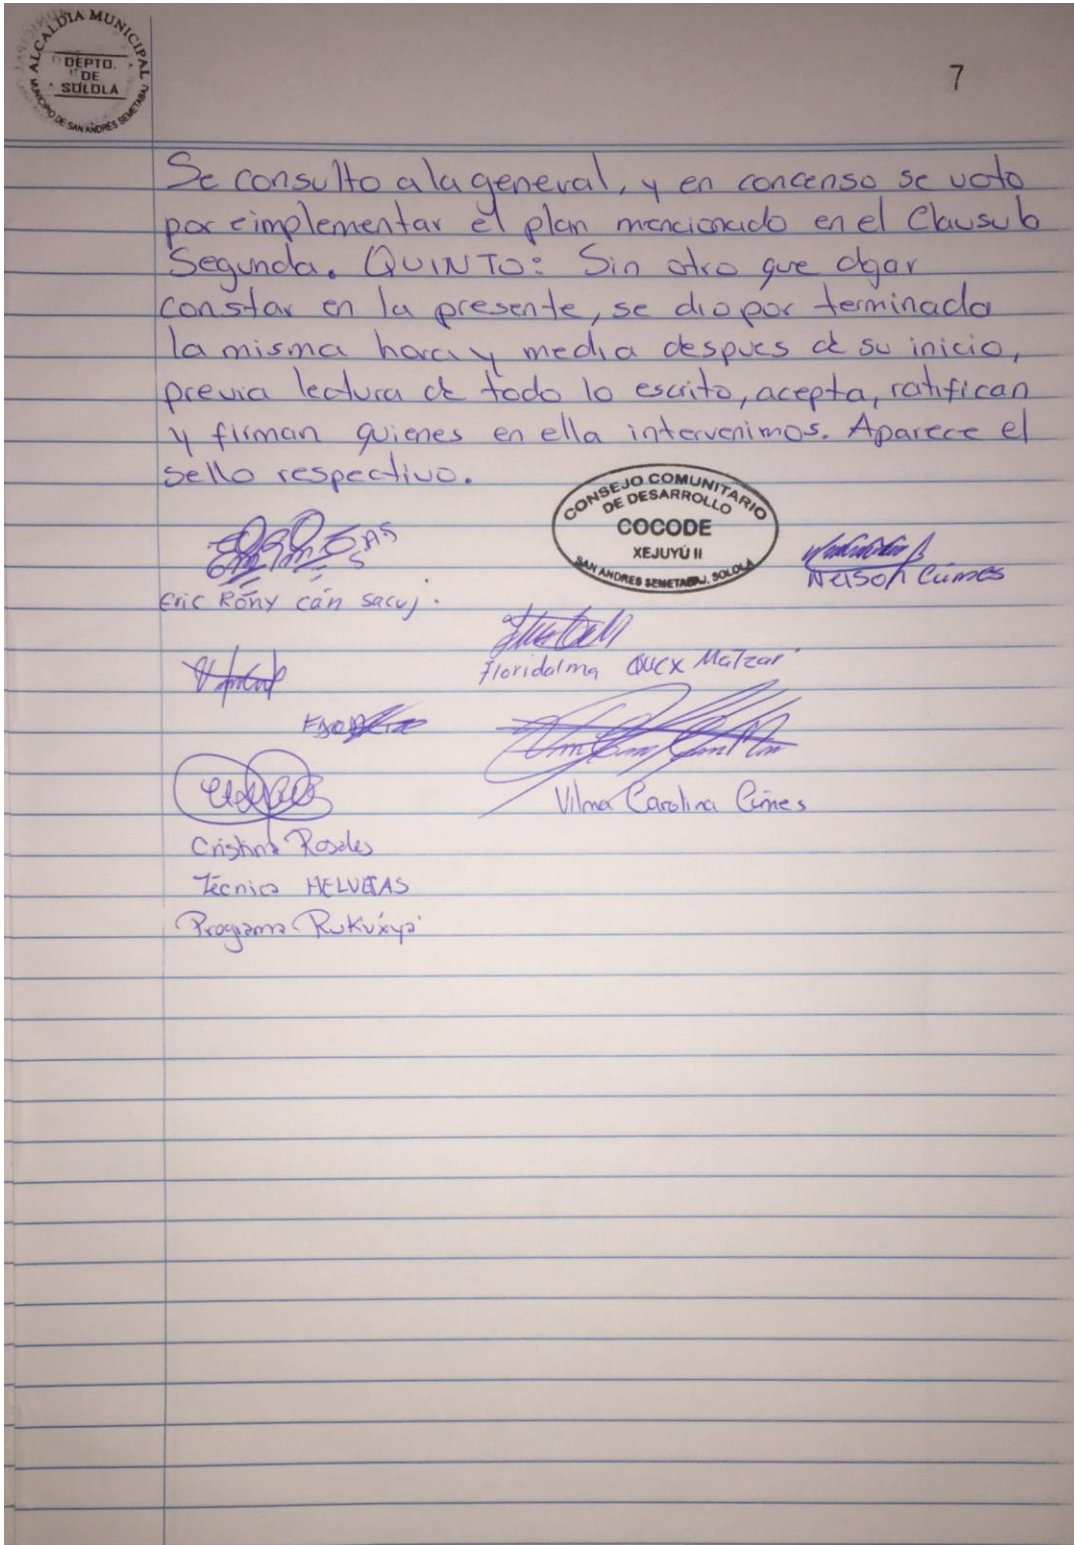 ALCALDIA MUNICIPAL
DEPTO.
DE
SOLOLA
MUNICIPIO DE SAN ANDRES SEMETABAJ
7
Se consulto a la general, y en concenso se voto
por eimplementar el plan mencionado en el Clausula
Segunda. QUINTO: Sin otro que dejar
constar en la presente, se dio por terminada
la misma hora y media despues de su inicio,
previa lectura de todo lo escrito, acepta, ratifican
y firman quienes en ella intervenimos. Aparece el
sello respectivo.
CONSEJO COMUNITARIO
DE DESARROLLO
COCODE
XEJUYÚ II
SAN ANDRES SEMETABAJ, SOLOLÁ
Nelson Cúmes
Eric Róny cán sacuj.
Floridalma Quex Matzar
Vilma Carolina Cúmes
Cristina Rosales
Técnica HELVETAS
Programa Rukúxya'